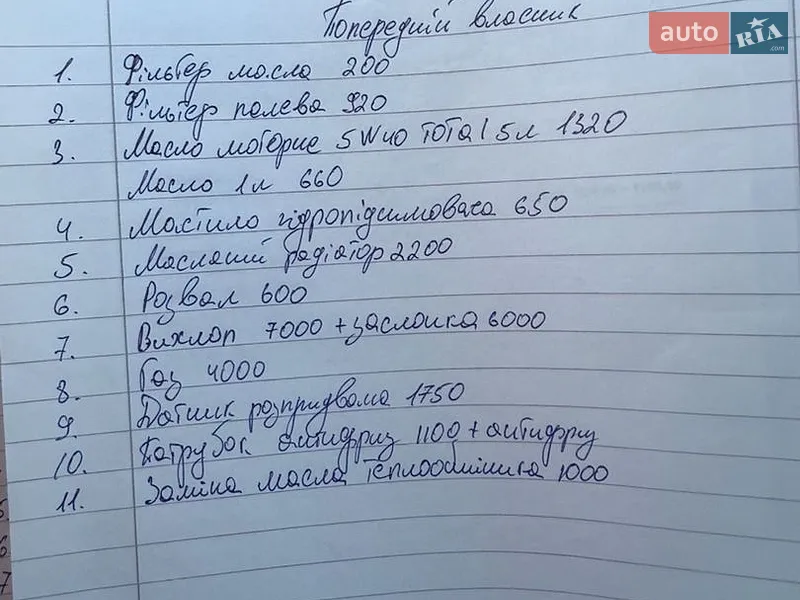 Попередній власник
auto RIA .com
1. Фільтер масла 200
2. Фільтер палева 920
3. Масло моторне 5W40 Total 5л 1320
Масло 1л 660
4. Мастило гідропідсилювача 650
5. Масляний радіатор 2200
6. Розвал 600
7. Вихлоп 7000 + заслонка 6000
8. Газ 4000
9. Датчик розпридвала 1750
10. Патрубок антифриз 1100 + антифриз
11. Заміна масла теплообмінника 1000
5.
6
7